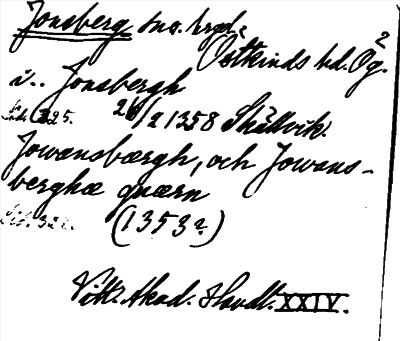 Jonsberg sn o. bygd,
Östkinds hd. Ög.
i.. Jonsbergh
26/2 1358 Skällvik.
Jowansbærgh, och Jowans-
berghæ quærn
(1353?)
Vitt. Akad. Handl. XXIV.